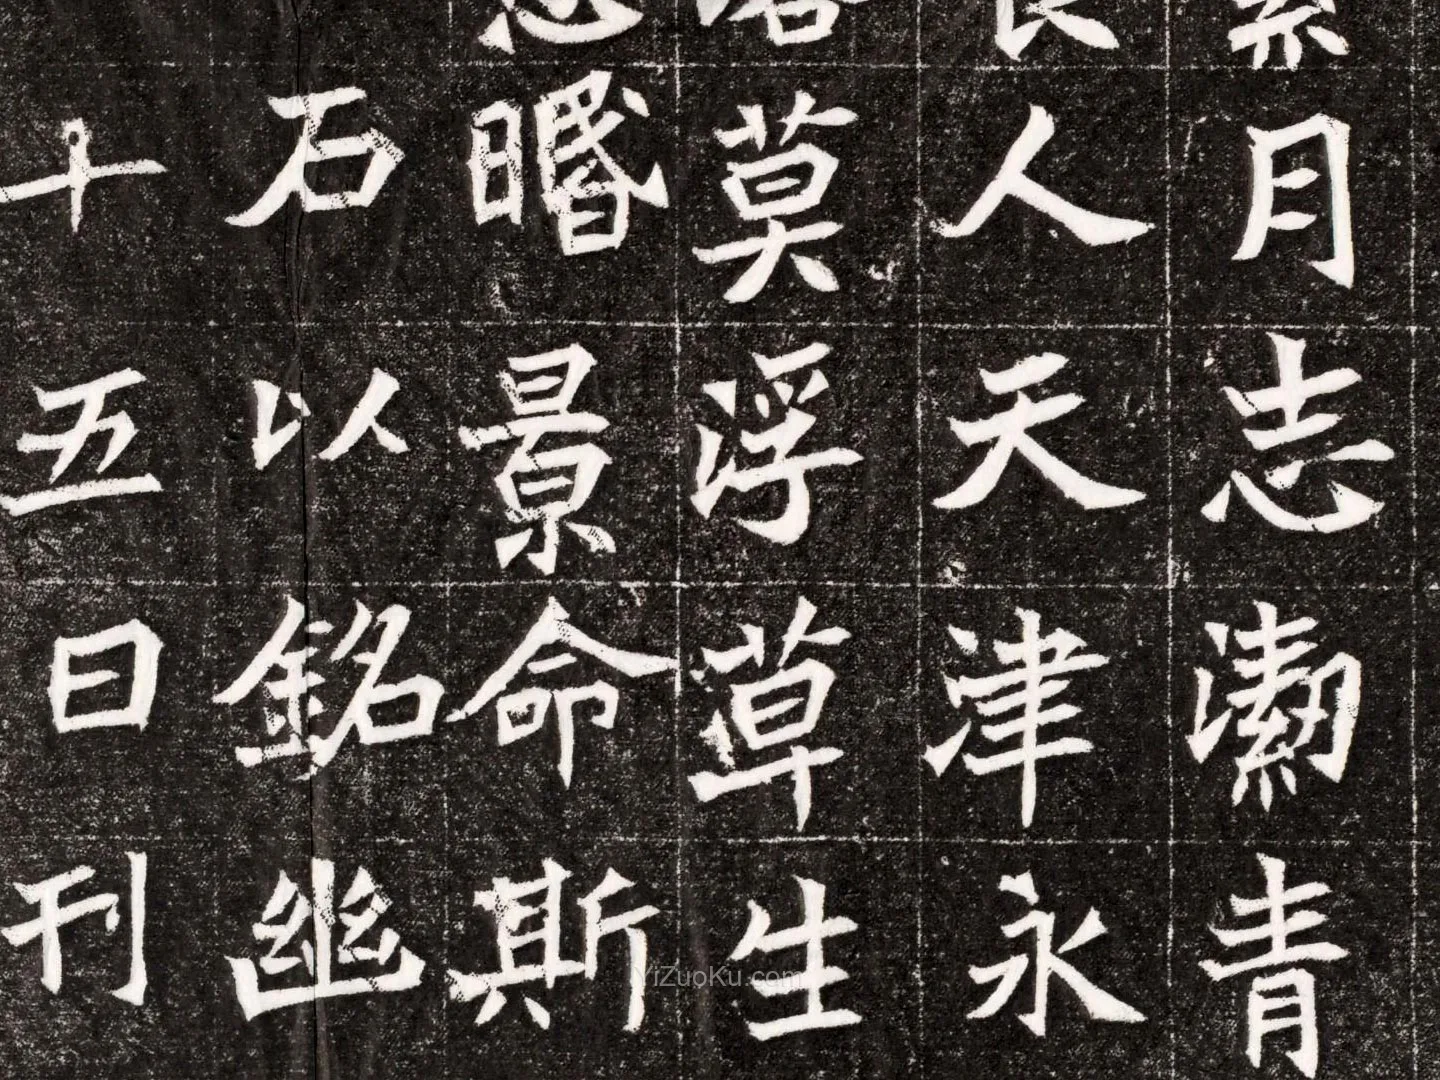 月志潔青
人天津永
莫浮草生
景命斯
石以銘幽
十五日刊
YiZuoKu.com